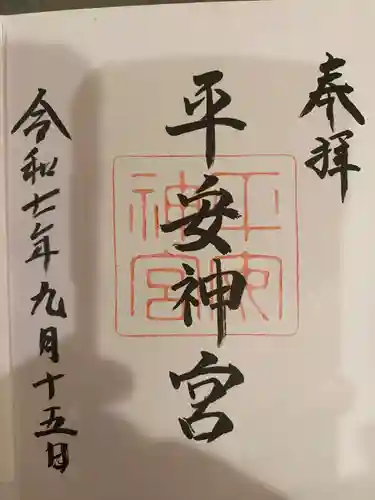 奉拝
平安神宮
平安神宮
令和七年九月十五日